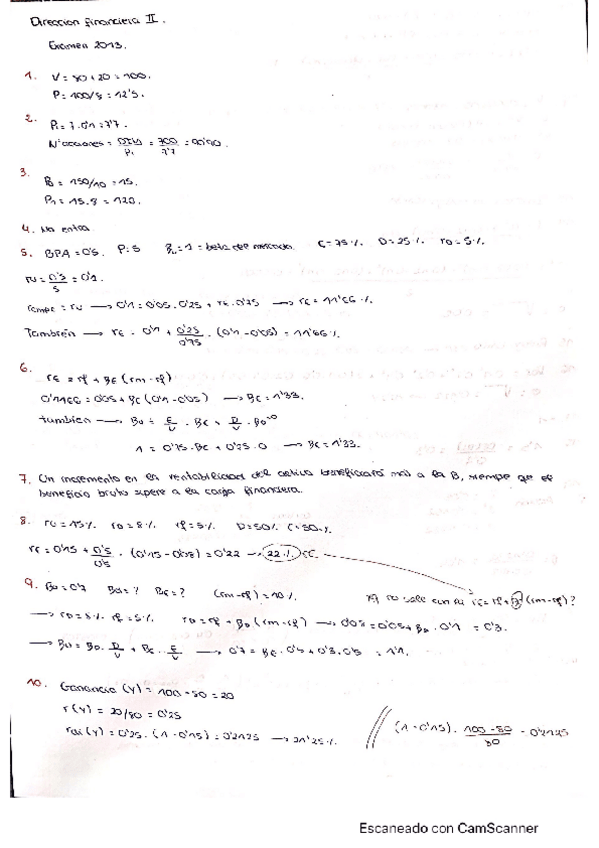 Direccion financiera II.
Examen 2013.
1. V = 80 + 20 = 100.
P = 100/8 = 12'5.
2. P1 = 7 . 0'1 = 7'7.
Nº acciones = = 700 / 7'7 = 90'90.
3. B = 150/10 = 15.
P1 = 15 . 8 = 120.
4. No entra
5. BPA = 0'5. P = 5 = 1 = beta del mercado. C = 75%. D = 25%. rD = 5%.
ru = 0'5 / 5 = 0'1.
= ru → 0'1 = 0'05 . 0'25 + rE . 0'75 → rE = 11'66%.
También → rE = 0'1 + 0'25 / 0'75 . (0'1 - 0'05) = 11'66%.
6. rE = rf + BE (rm - rf)
0'1166 = 0'05 + BE (0'1 - 0'05) → BE = 1'33.
también → Bu = E/V . BE + D/V . BD=0
1 = 0'75 . BE + 0'25 . 0 → BE = 1'33.
7. Un incremento en la rentabilidad del activo beneficiará más a la B, siempre que el
beneficio bruto supere a la carga financiera.
8. ru = 15%. rD = 8%. rf = 5%. D = 50% C = 50%.
rE = 0'15 + 0'5 / 0'5 . (0'15 - 0'08) = 0'22 → 22%
9. Bu = 0'7 BD = ? BE = ? (rm - rf) = 10% no sale con rE = rf + B (rm - rf)?
→ rD = 8%. rf = 5%. rD = rf + BD (rm - rf) → 0'08 = 0'05 + BD . 0'1 = 0'3.
→ Bu = BD . D/V + BE . E/V → 0'7 = BE . 0'5 + 0'3 . 0'5 = 1'1.
10. Ganancia (Y) = 100 - 80 = 20
r(Y) = 20/80 = 0'25
(Y) = 0'25 . (1 - 0'15) = 0'2125 → 21'25%. // (1 - 0'15) . 100 - 80 / 80 = 0'2125
Escaneado con CamScanner